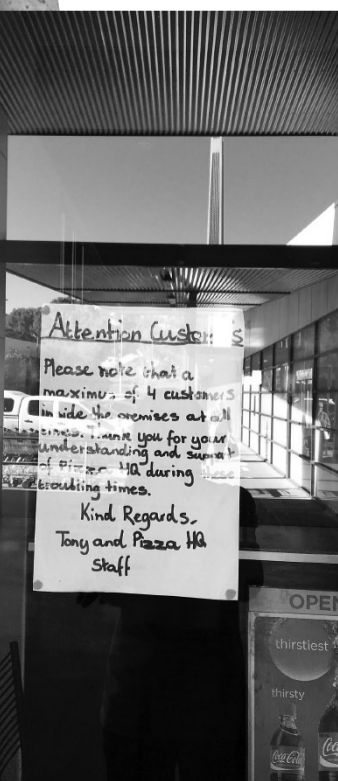 Attention Customers
Please note that a
maximum of 4 customers
inside the premises at all
times. Thank you for your
understanding and support
of Pizza HQ during these
troubling times.
Kind Regards,
Tony and Pizza HQ
Staff
OPEN
thirstiest
thirsty
Coca-Cola